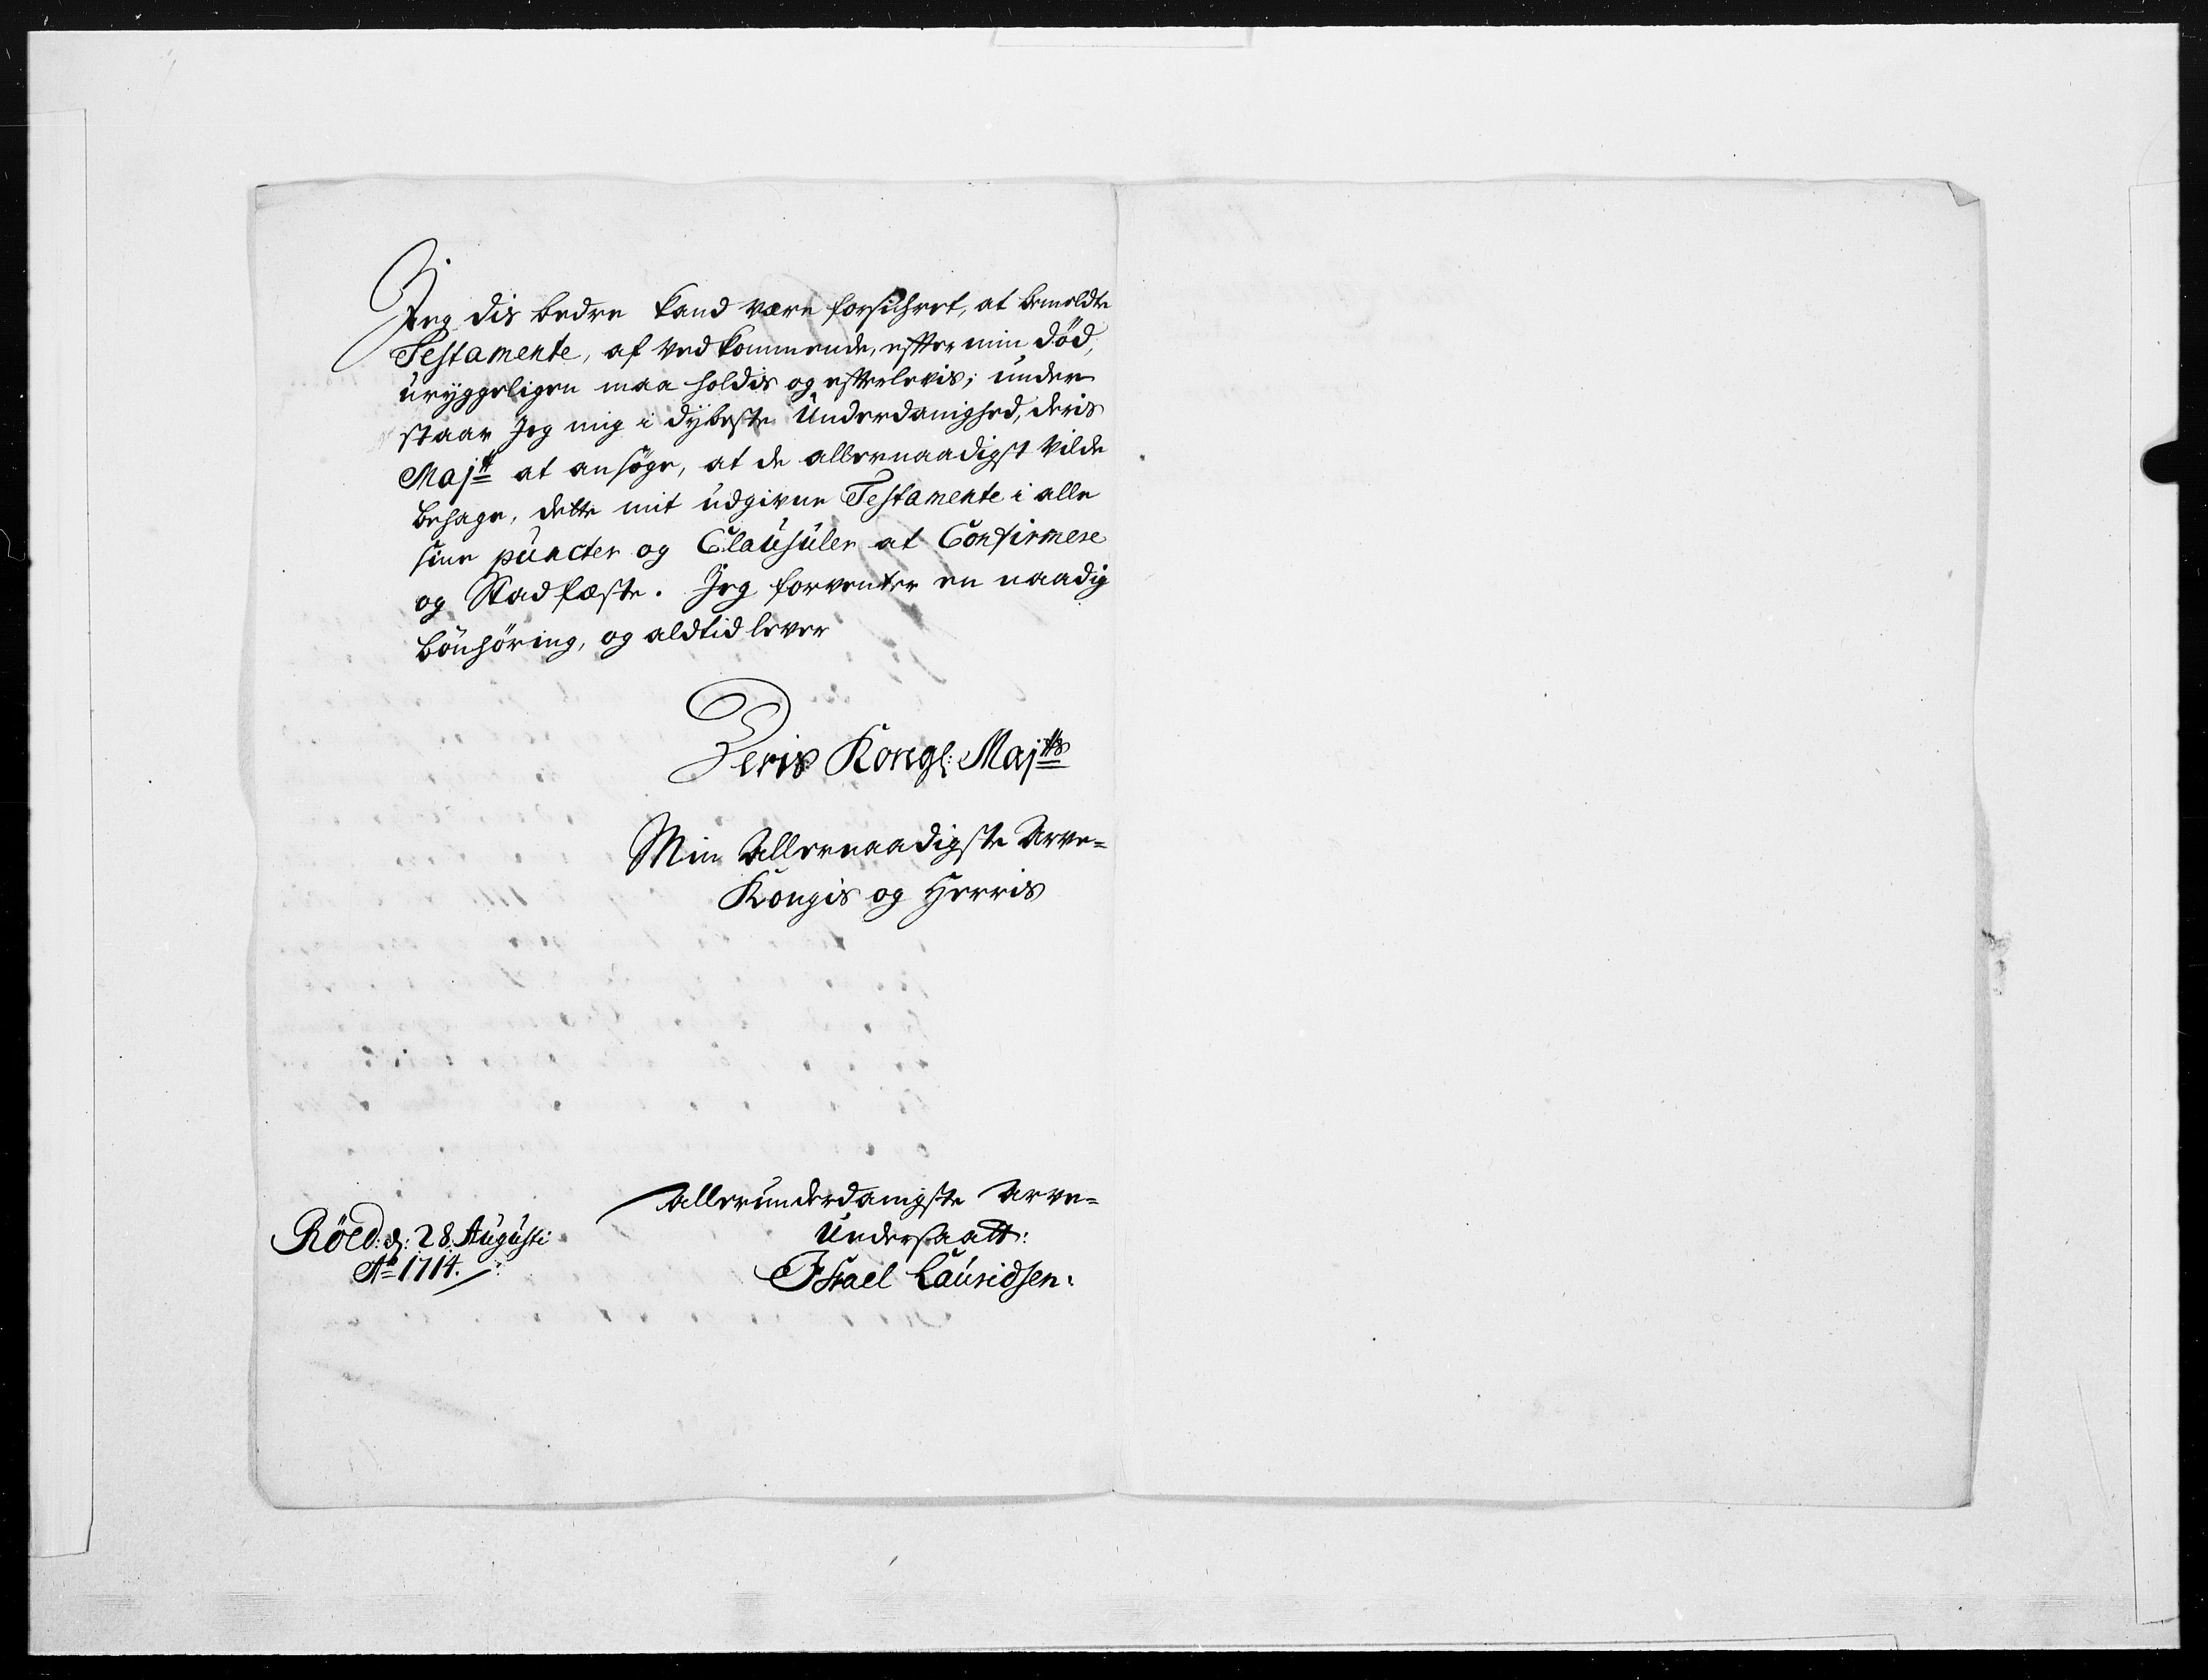 Jeg dis bedre kand være forsichret, at bemeldte
Testamente, af vedkommende, effter min död,
uryggeligen maa holdis og effterlevis; under
staar Jeg mig i dybeste Underdanighed, deris
Maj:tt at ansöge, at de allernaadigst vilde
behage, dette mit udgivne Testamente i alle
sine puncter og Clausuler at Confirmere
og Stadfæste. Jeg forventer en naadig
bönhöring, og aldtid lever
Deris Kongl: Maj:tts
Min Allernaadigste Arve=
Kongis og Herris
allerunderdanigste Arve=
Undersaatt:
Röed: d: 28 Augusti
Ao 1714.
Israel Lauridsen: